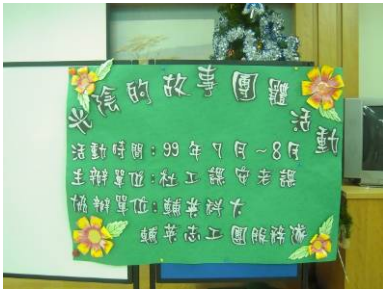 光陰的故事團體活動
活動時間：99年7月~8月
主辦單位：社工課安老課
協辦單位：輔英科大
輔英志工團服務隊